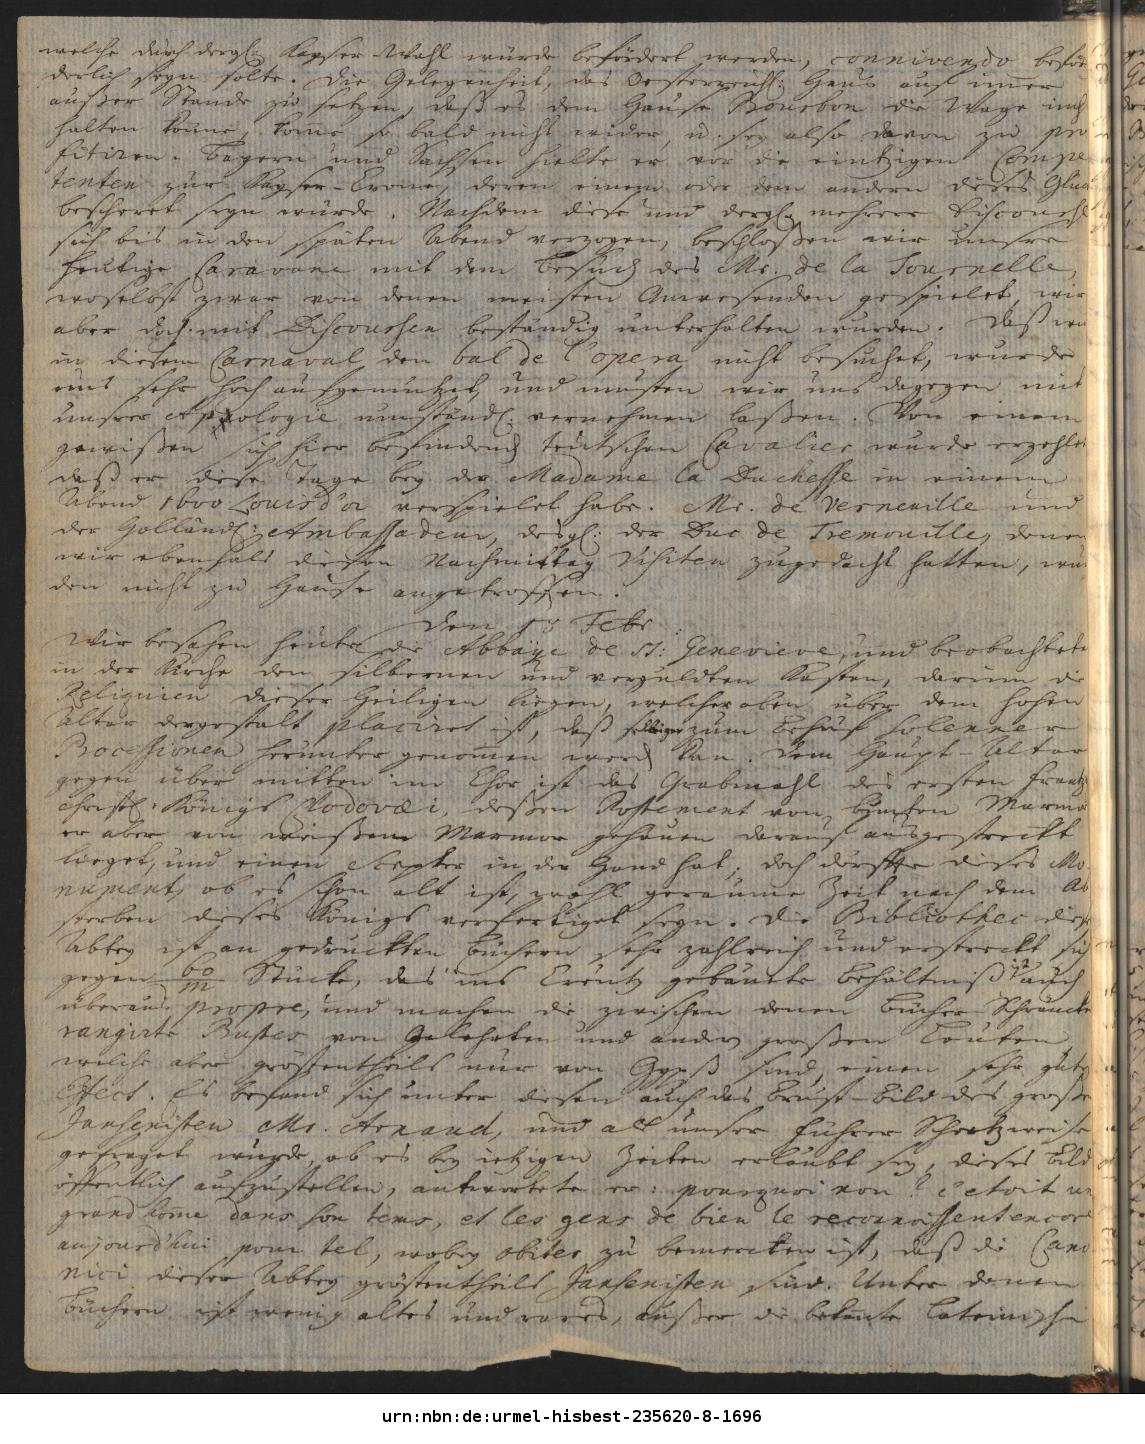 welche durch dergl. Kayser-Wahl würde befördert werden, connivendo beför
derlich seyn solte. Die Gelegenheit, das Oesterreichl. Hauß auf im̄er
außer Stande zu setzen, daß es dem Hause Bourbon die Wage nich
halten könne, kom̄e so bald nicht wider, u. sey also davon zu pro
fitiren. Bayern und Sachsen hielte er vor die eintzigen Compe
tenten zur Kayser-Crone, deren einem oder dem andern dieses Glück
bescheret seyn würde. Nachdem diese und dergl. mehrere Discourse
sich bis in den späten Abend verzogen, beschloßen wir unsre
heutige Caravane mit dem Besuch des Mr. de la Tournelle,
woselbst zwar von denen meisten Anwesenden gespielet, wir
aber doch mit Discoursen beständig unterhalten wurden. Daß wir
in diesem Carnaval den bal de l'opera nicht besuchet, wurde
uns sehr hoch aufgemutzet, und musten wir uns dagegen mit
unsrer Apologie umständl. vernehmen laßen. Von einem
gewißen sich hier befindend teutschen Cavalier wurde erzehlt
daß er diese Tage bey der Madame la Duchesse in einem
Abend 1600 Louisd'or verspielet habe. Mr. de Verneuille und
der Holländ. Ambassadeur, desgl. der Duc de Tremouille, denen
wir ebenfals diesen Nachmittag Visiten zugedacht hatten, wur
den nicht zu Hause angetroffen.
den 13 Febr.
Wir besahen heute die Abbaye de St. Genevieve, und beobachtete
in der Kirche den silbernen und verguldten Kasten, darinn die
Reliquien dieser Heiligen liegen, welcher oben über dem hohen
Altar dergestalt placiret ist, daß selbiger zum Behuf solenner
Processionen herunter genom̄en werd kan. Dem Haupt-Altar
gegen über mitten im Chor ist das Grabmahl des ersten Frantz
christl. Königs Clodovæi, deßen Postement von Marmor
er aber von weißem Marmor gehauen darauf ausgestreckt
lieget, und einen Scepter in der Hand hat; doch dürffte dieses Mo
nument, ob es schon alt ist, wohl geraume Zeit nach dem Ab
sterben dieses Königs verfertiget seyn. Die Bibliothec dieser
Abbey ist an gedruckten Büchern sehr zahlreich und erstreckt sich
gegen 60/m Stücke, das ins Creutz gebaute Behältniß ist auch
überaus propre, und machen die zwischen denen Bücher-Schräncke
rangirte Bustes von Gelehrten und andern großen Leuten,
welche aber gröstentheils nur von Gyps sind, einen sehr guten
Effect. Es befand sich unter diesen auch das Brust-Bild des große
Jansenisten Mr. Arnaud, und als unser Führer Schertzweise
gefraget wurde, ob es bey ietzigen Zeiten erlaubt sey, dieses Bild
öffentlich aufzustellen, antwortete er: pourquoi non? c'etoit un
grand hom̄e dans son tems, et les gens de bien le reconnoissent encore
aujourd'hui pour tel, wobey obiter zu bemercken ist, daß die Cano
nici dieser Abbey gröstentheils Jansenisten sind. Unter denen
Büchern ist wenig altes und rares, außer die bekante Lateinische